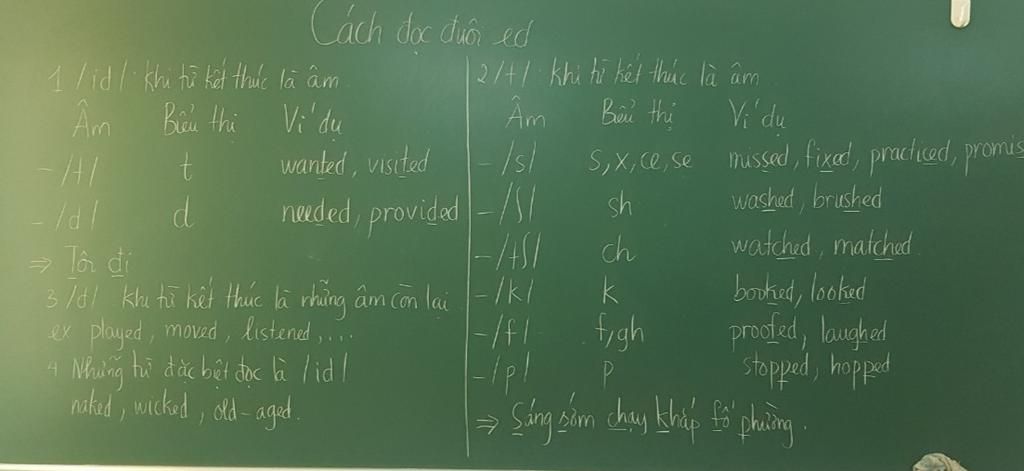 Cách đọc đuôi ed
1 /id/ khi từ kết thúc là âm
Âm Biểu thị Ví dụ
- /t/ t wanted, visited
- /d/ d needed, provided
⇒ Tôi đi
3 /d/ khi từ kết thúc là những âm còn lại
ex played, moved, listened, ...
4 Những từ đặc bệt đọc là /id/
naked, wicked, old-aged.
2 /t/ khi từ kết thúc là âm
Âm Biểu thị Ví dụ
- /s/ s, x, ce, se missed, fixed, practiced, promis
- /ʃ/ sh washed, brushed
- /tʃ/ ch watched, matched
- /k/ k booked, looked
- /f/ f, gh proofed, laughed
- /p/ p stopped, hopped
⇒ Sáng sớm chạy khắp fố phường.